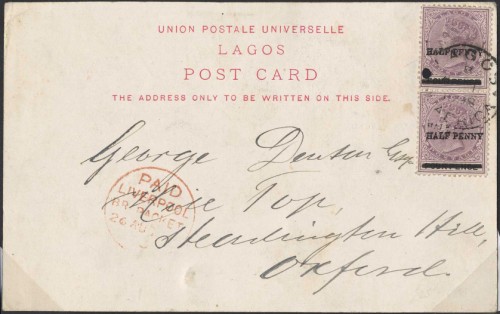 UNION POSTALE UNIVERSELLE
LAGOS
POST CARD
THE ADDRESS ONLY TO BE WRITTEN ON THIS SIDE.
HALF PENNY
HALF PENNY
George Denton Esq
PAID
LIVERPOOL
BR. PACKET
26 AU
Top,
Headington Hill,
Oxford.